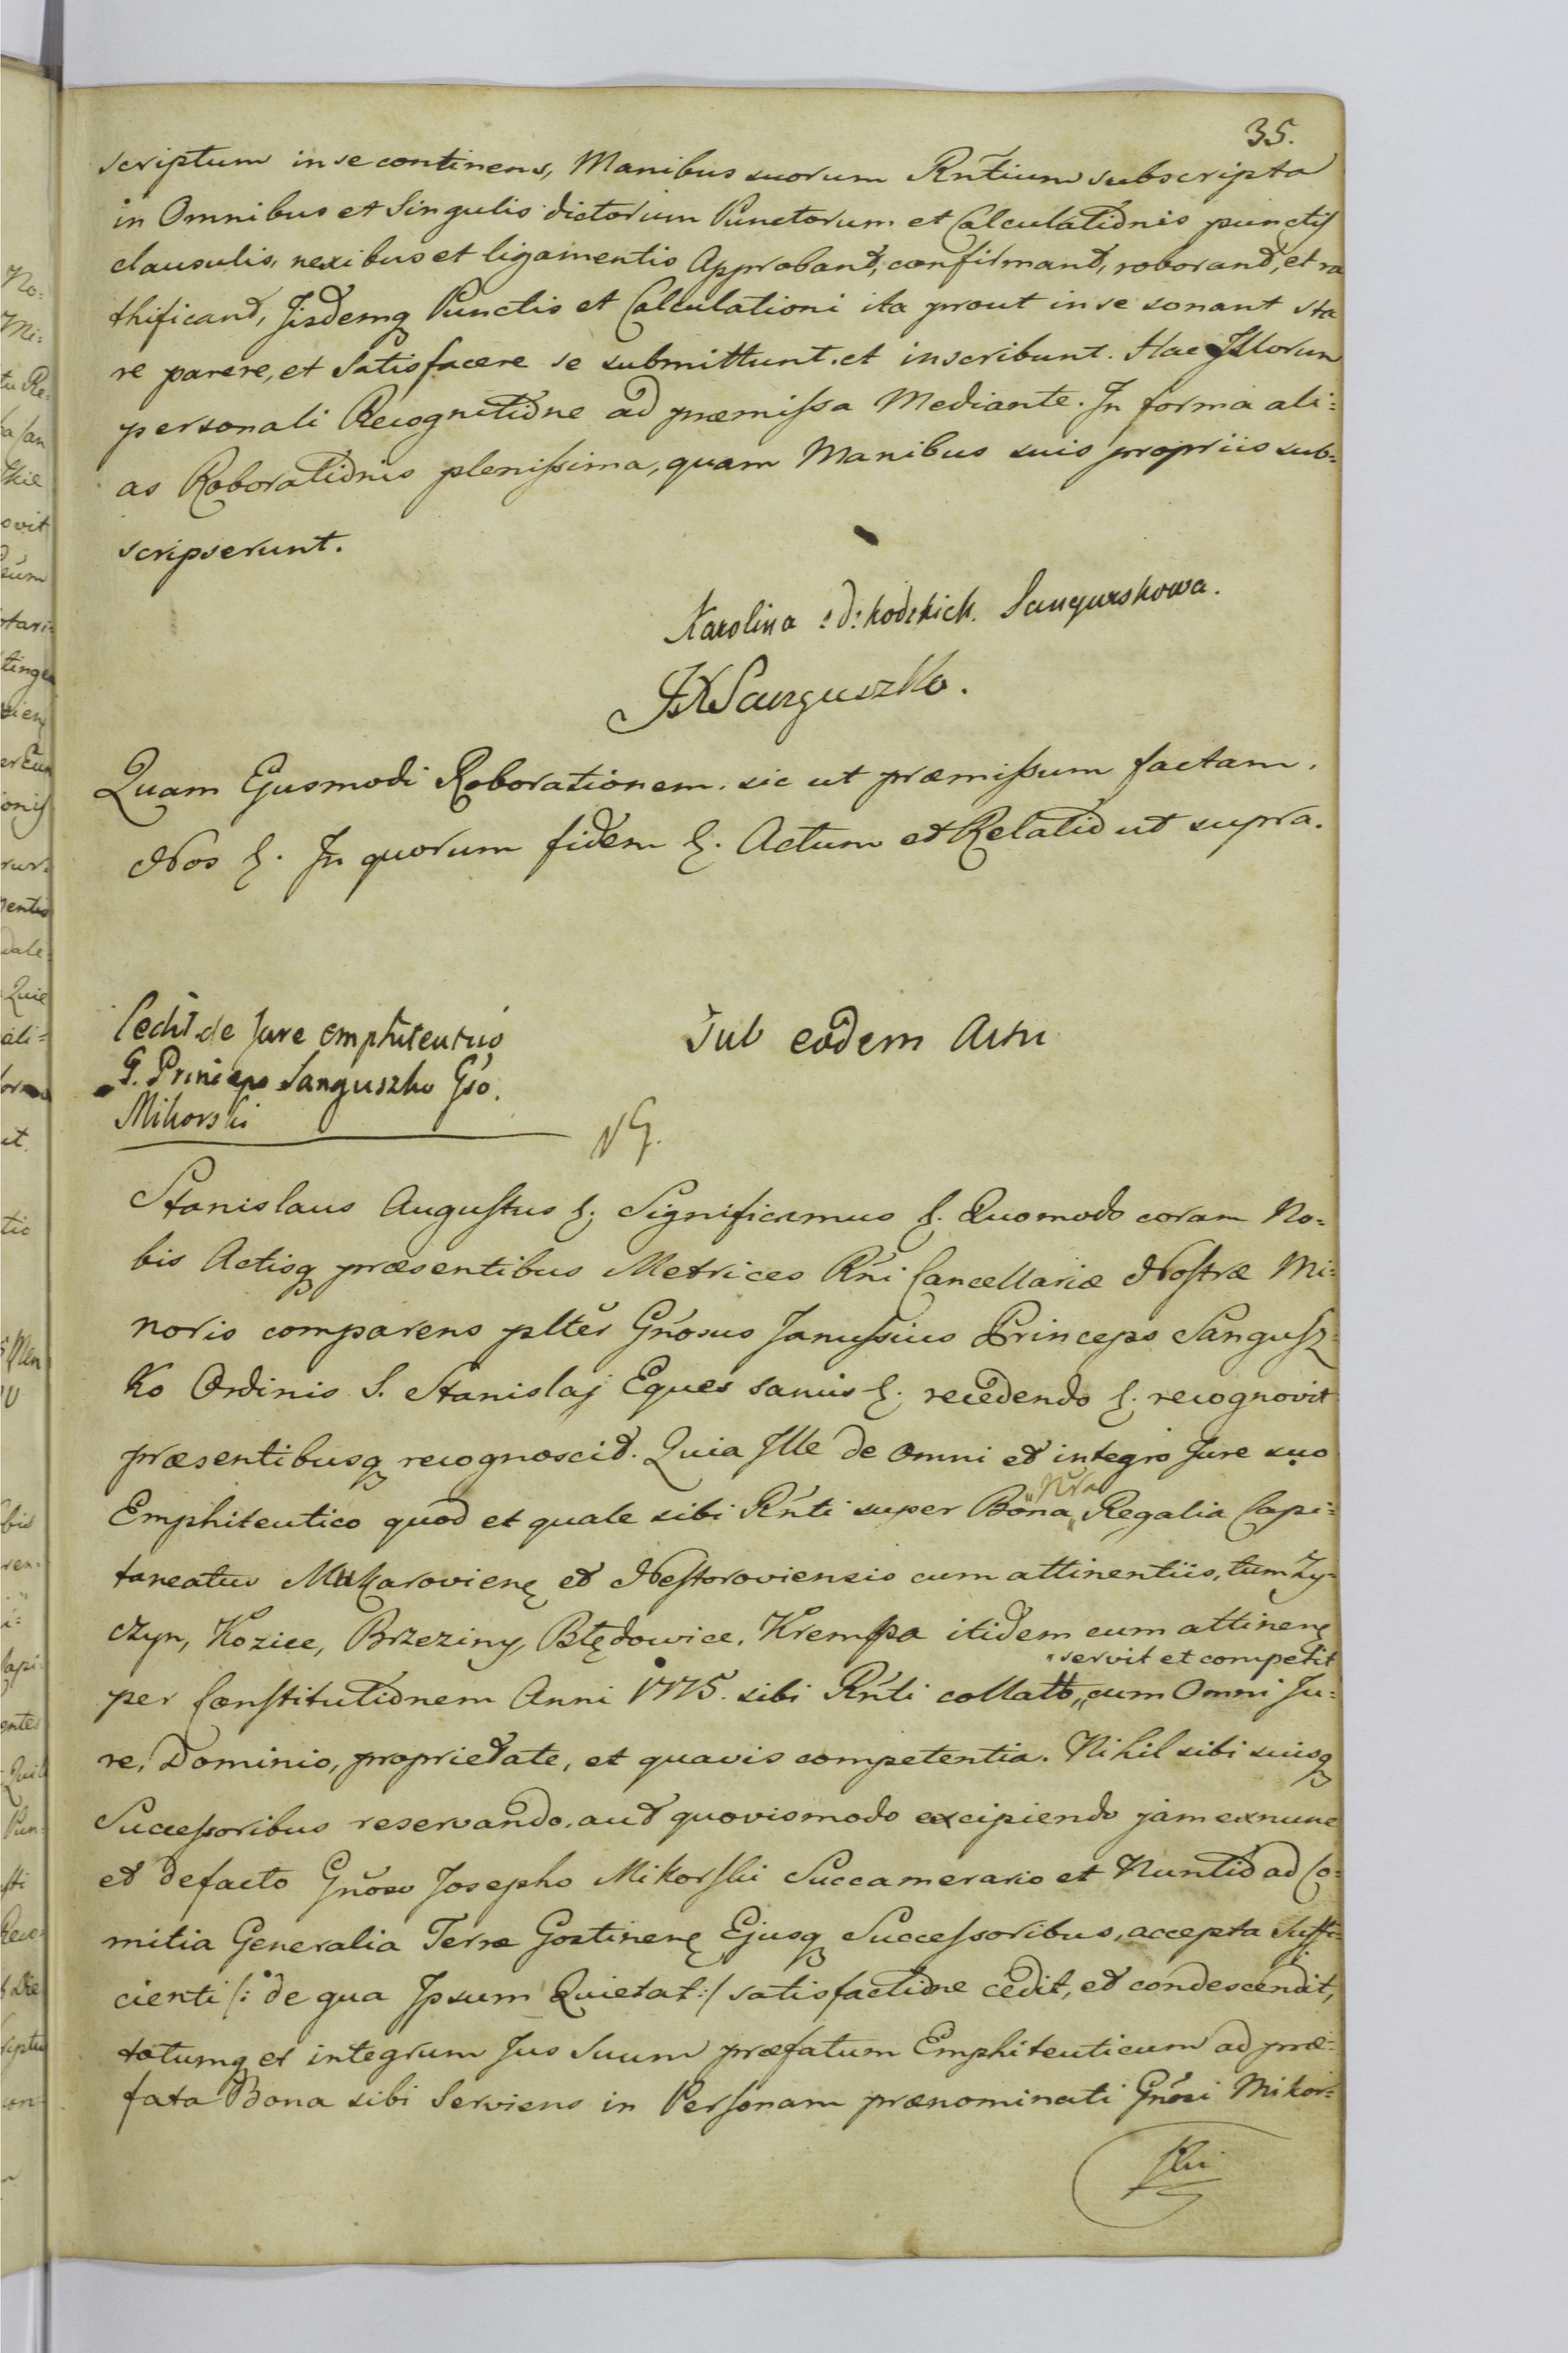 35.
scriptum in se continens, Manibus suorum Rñtium subscripta
in Omnibus et Singulis dictorum Punctorum et Calculatiõnis punctis
clausulis, nexibus et ligamentis Approband, confirmand, roborand, et ra
thificand, Jisdemq Punctis et Calculationi ita prout in se sonant sta
re parere, et Satisfacere se submittunt et inscribunt. Hac Istorum
personali Recognitiõne ad præmissa Mediante. In forma ali=
as Roboratiõnis plenissima, quam Manibus suis propriis sub=
scripserunt.
Karolina
JXSanguszko.
Quam Ejusmodi Roborationem sic ut præmissum factam.
Nos &. In quorum fidem &. Actum et Relatio ut supra.
Sub eodem Actu
de Jure emphiteutico
G. Princeps Sanguszko Gso.
Mikorski
NG.
Stanislaus Augustus &. Significamus &. Quomodo coram No=
bis Actisq præsentibus Metrices Rñi Cancellariæ Nostræ Mi=
noris comparens pltēr Gñosus Janussius Princeps Sangusz=
ko Ordinis S. Stanislaj Eques sanus &. recedendo &. recognovit
præsentibusq recognoscit. Quia Ille de omni et integro Jure suo
Emphiteutico quod et quale sibi Rñti super Bona „Nra„ Regalia Capi=
taneatus Makarovienę et Nestoroviensis cum attinentiis, tum Ży=
czyn, Kozice, Brzeziny, Błędowice, Krempa itidem cum attinenę
„servit et competit
per Constitutiõnem Anni 1775. sibi Rñti collato„ cum Omni Ju=
re, Dominio, proprietate, et quavis competentia. Nihil sibi suisq
Successoribus reservando, aut quovismodo excipiendo jam exnunc
et defacto Gñoso Josepho Mikorski Succamerario et Nuntio ad Co=
mitia Generalia Terræ Gostinenę Ejusq Successoribus, accepta suffi=
cienti /: de qua Ipsum Quietat :/ satisfactiõne cedit, et condescendit,
totumq et integrum Jus Suum præfatum Emphiteuticum ad præ=
fata Bona sibi Serviens in Personam prænominati Gñosi Mikor=
ski